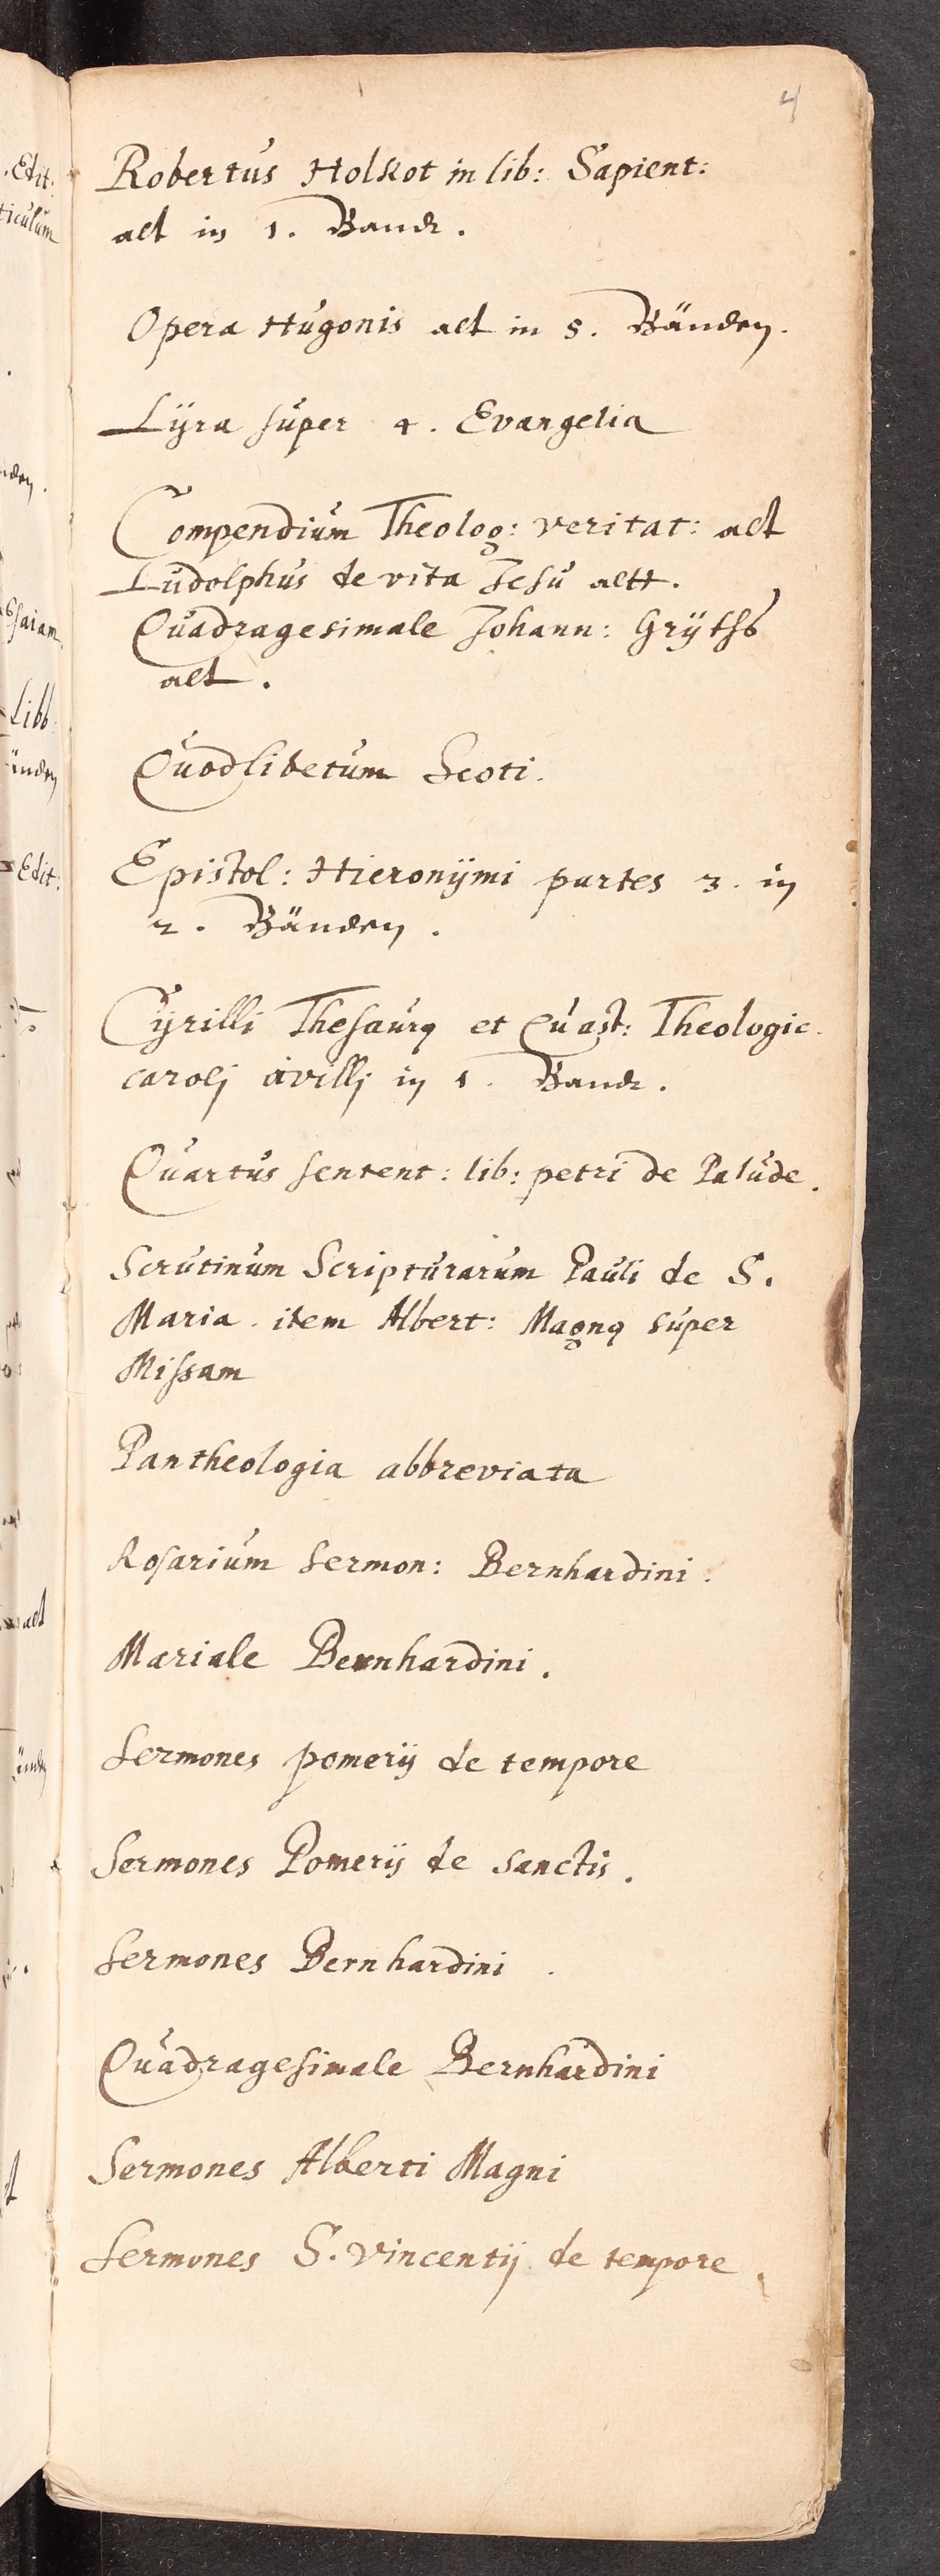 4
Robertus Holkot in lib: Sapient:
alt in 1. Bandt.
Opera Hugonis alt in 5. Bänden.
Lÿra super 4. Evangelia
Compendium Theolog: veritat: alt
Ludolphus de vita Jesu altt.
Quadragesimale Johann: Grÿtsß
alt.
Quodlibetum Scoti.
Epistol: Hieronÿmi partes 3. in
2. Bänden.
Cyrilli Thesaurq et Quæst: Theologic.
caroli in 1. Bandt.
Quartus sentent: lib: petri de Palude.
Scrutinum Scripturarum Pauli de S.
Maria. item Albert: Magnq super
Missam
Pantheologia abbreviata
Rosarium sermon: Bernhardini.
Mariale Bernhardini.
Sermones pomerij de tempore
Sermones Pomerij de sanctis.
Sermones Bernhardini.
Quadragesimale Bernhardini
Sermones Alberti Magni
Sermones S. vincentij de tempore.
Edit:
ticulum
Esaiam
Libb:
Edit:
alt